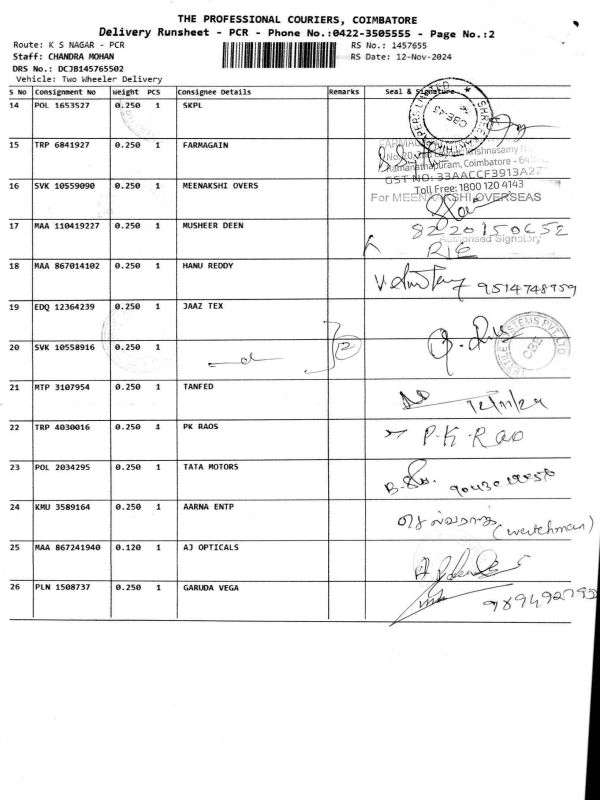 THE PROFESSIONAL COURIERS, COIMBATORE
Delivery Runsheet - PCR - Phone No.:0422-3505555 - Page No.:2
Route: K S NAGAR - PCR RS No.: 1457655
Staff: CHANDRA MOHAN RS Date: 12-Nov-2024
DRS No.: DCJB145765502
Vehicle: Two Wheeler Delivery
S No Consignment No Weight PCS Consignee Details Remarks Seal & Signature
14 POL 1653527 0.250 1 SKPL
15 TRP 6841927 0.250 1 FARMAGAIN
Ramanathapuram, Coimbatore -
GST NO: 33AACCF3913A2Z
16 SVK 10559090 0.250 1 MEENAKSHI OVERS Toll Free: 1800 120 4143
For MEENAKSHI OVERSEAS
17 MAA 110419227 0.250 1 MUSHEER DEEN 8220150652
Authorised Signatory
18 MAA 867014102 0.250 1 HANU REDDY 9514748959
19 EDQ 12364239 0.250 1 JAAZ TEX
20 SVK 10558916 0.250 1 2
21 MTP 3107954 0.250 1 TANFED 12/11/24
22 TRP 4030016 0.250 1 PK RAOS P.K.Rao
23 POL 2034295 0.250 1 TATA MOTORS
24 KMU 3589164 0.250 1 AARNA ENTP (watchman)
25 MAA 867241940 0.120 1 AJ OPTICALS
26 PLN 1508737 0.250 1 GARUDA VEGA